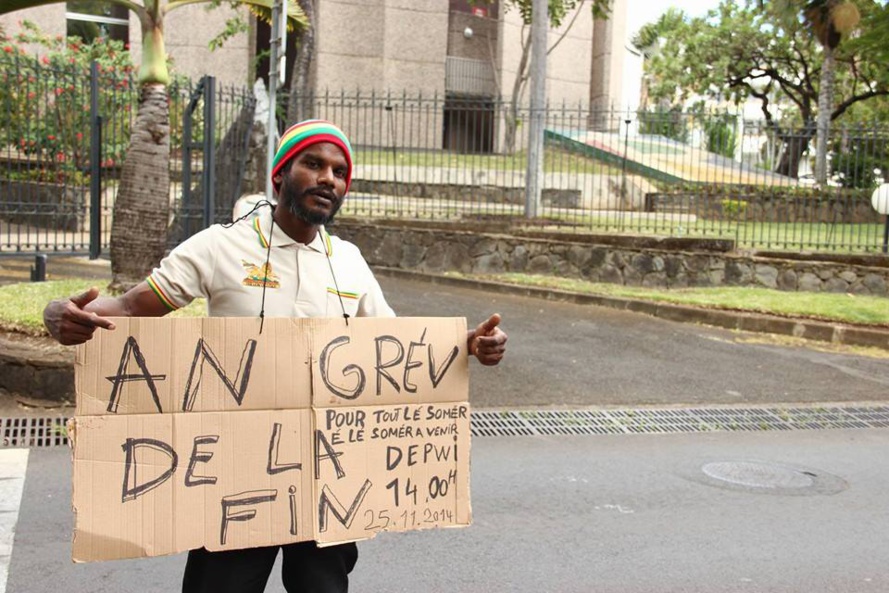 AN GRÉV
DE LA FiN
POUR TOUT LÉ SOMÉR
É LÉ SOMÉR A VENIR
DEPWi
14.00H
25.11.2014